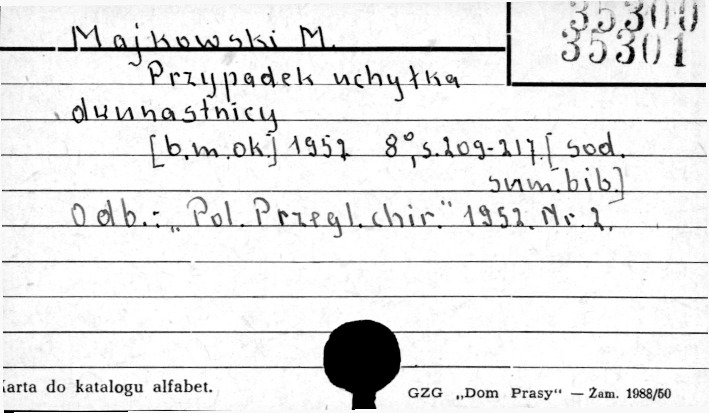 35300
35301
Majkowski M.
Przypadek uchyłka
dwunastnicy
[b.m.ok.] 1952 8°, s.209-217.[ sod.
sum.bib.]
Odb.: „Pol. Przegl. chir." 1952. Nr. 2.
arta do katalogu alfabet.
GZG „Dom Prasy" — Zam. 1988/50